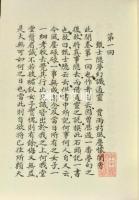 第一回
甄士隱夢幻識通靈 賈雨村風塵懷閨秀
此開卷第一回也作者自云因曾歷過一番夢幻之
後故將真事隱去而借通靈之說撰石頭記一書
也故曰甄士隱云云但書中所記何事何人自又云
今風塵碌碌一事無成忽念及當日所有之女子一
一細考較去覺其行止見識皆出於我之上何我堂
堂鬚眉誠不若彼裙釵女子實愧則有餘悔又無益
是大無可如何之日也當此則自欲將已往所